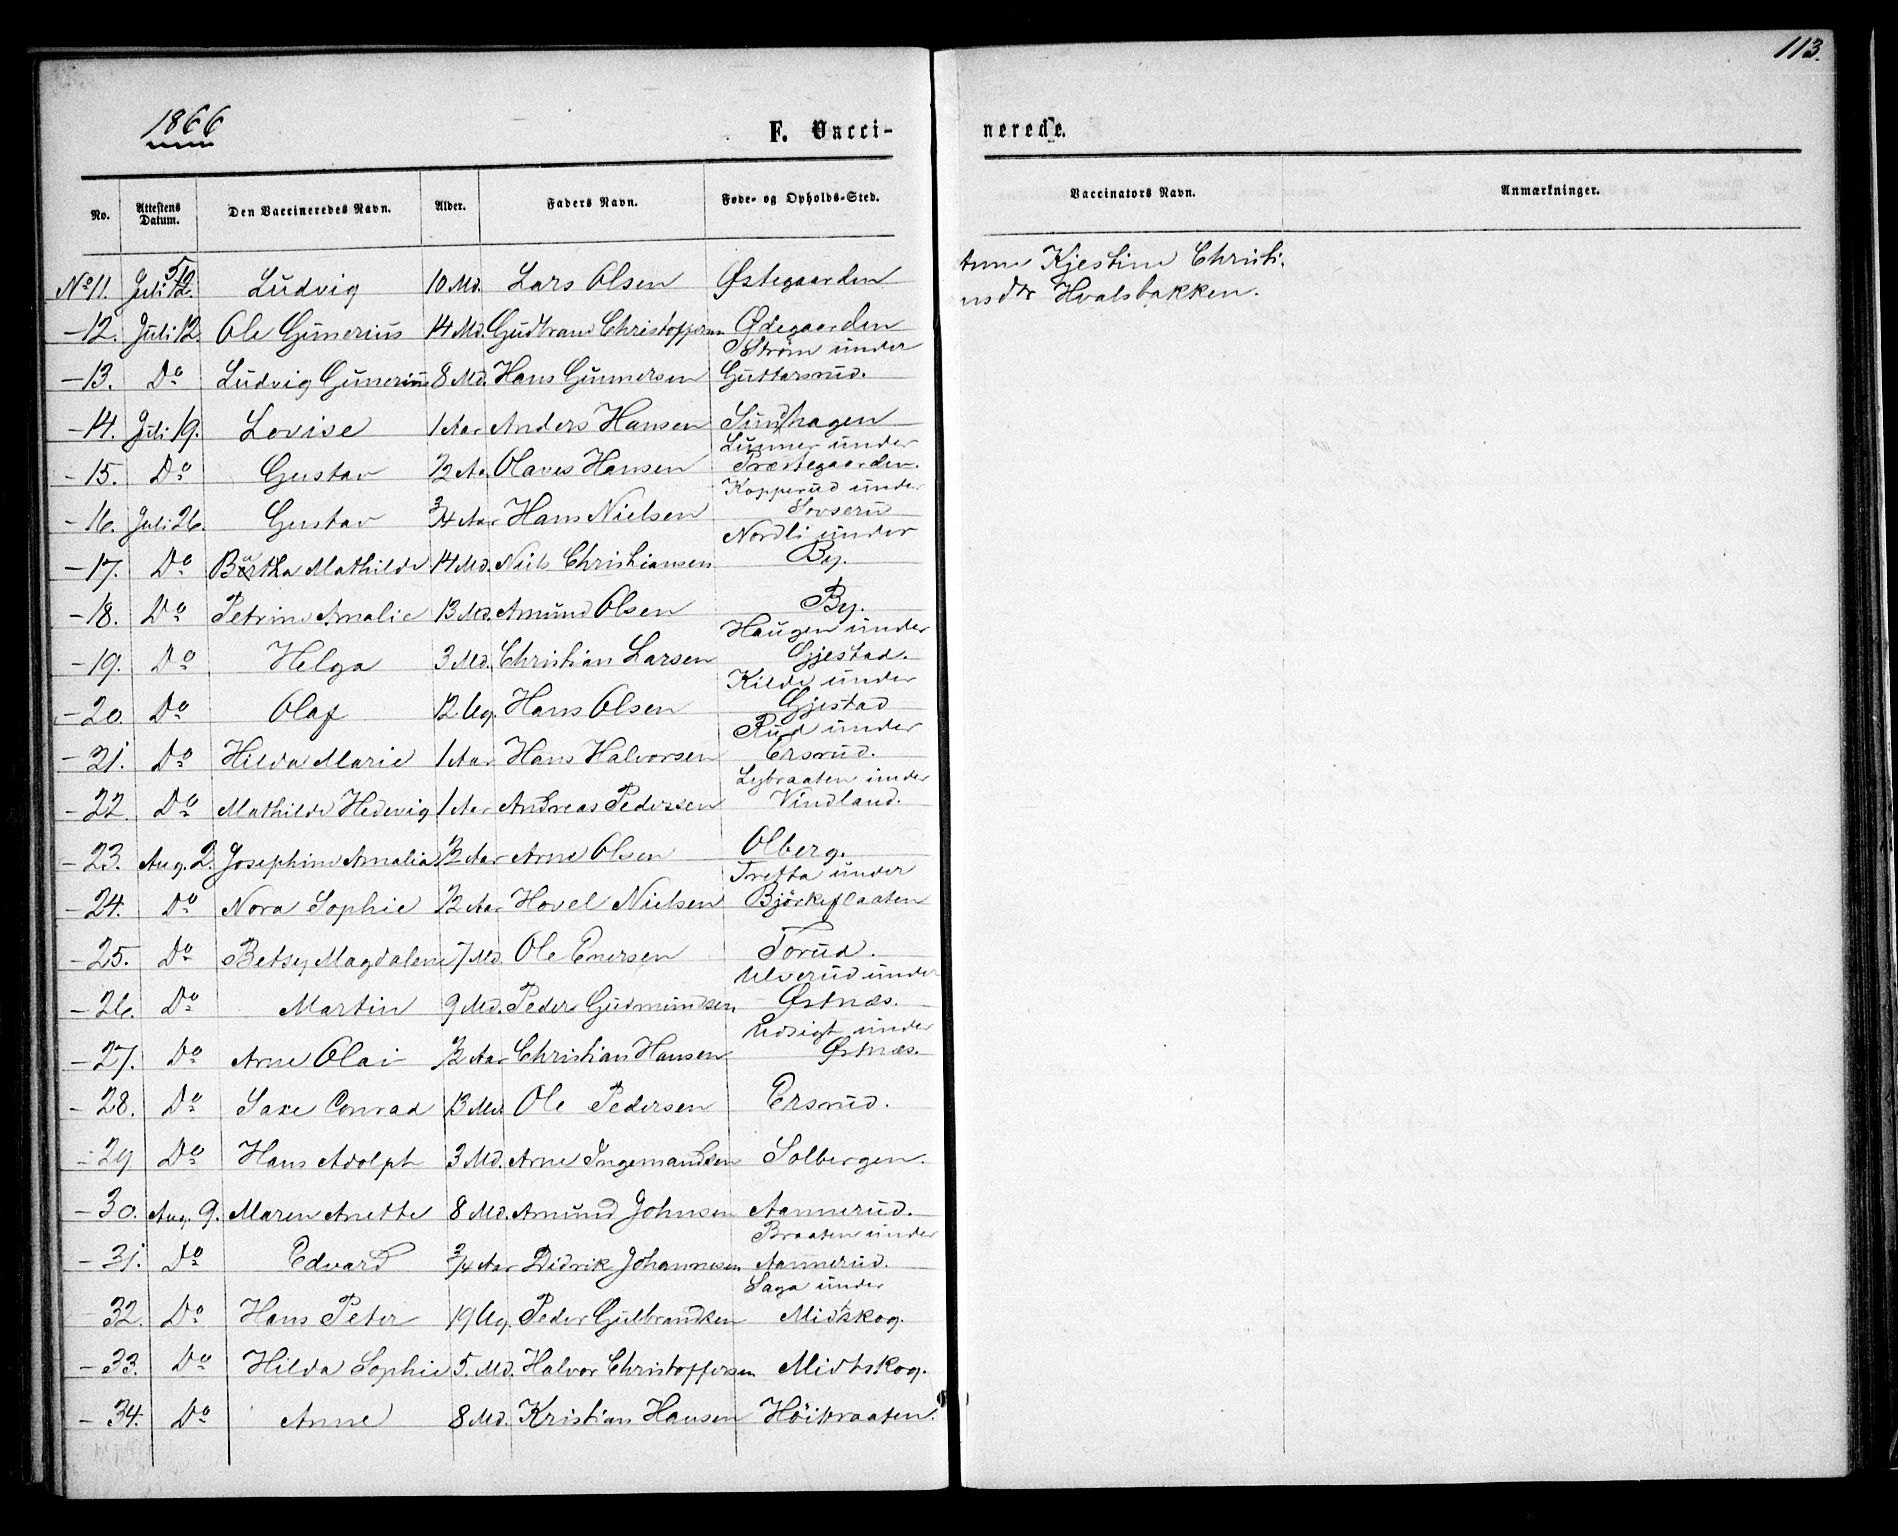 113.
1866
F. Vacci-
nerede.
No. Attestens Datum. Den Vaccineredes Navn. Alder. Faders Navn. Føde- og Opholds-Sted. Vaccinators Navn. Anmærkninger.
No 11. Juli 12. Ludvig 10 Md. Lars Olsen Østegaarden Anne Kjestine Christi-
nsdtr Hvalsbakken.
- 12. Juli 12. Ole Gunerius 14 Md. Gudbrand Christoffersen Ødegaarden
- 13. Do Ludvig Gunerius 8 Md. Hans Gunnersen Strøm under Guttersrud.
- 14. Juli 19. Lovise 1 Aar Anders Hansen Sundhagen
- 15. Do Gustav 1/2 Aa Olaves Hansen Lunner under Præstegaarden.
- 16. Juli 26. Gustav 3/4 Aar Hans Nielsen Kopperud under
- 17. Do Bertha Mathilde 14 Md. Niels Christiansen Nordli under By.
- 18. Do Petrine Amalie 13 Md. Amund Olsen By.
- 19. Do Helga 3 Md. Christian Larsen Haugen under Gjestad.
- 20. Do Olaf 12 Ug. Hans Olsen Kilde under Gjestad
- 21. Do Hilda Marie 1 Aar Hans Halvorsen Rud under Ersrud.
- 22. Do Mathilde Hedevig 1 Aar Andreas Pedersen Lybraaten under Vindland.
- 23. Aug. 2. Josephine Amalia 1/2 Aar Arne Olsen Olberg.
- 24. Do Nora Sophie 1/2 Aar Hovel Nielsen Tretta under Björkeflaaten
- 25. Do Betsey Magdalene 7 Md. Ole Enersen Torud.
- 26. Do Martin 9 Md. Peder Gudmundsen Ulverud under Østnæs.
- 27. Do Arne Olai 1/2 Aar Christian Hansen Udsigt under Østnæs.
- 28. Do Saxe Conrad 13 Md. Ole Pedersen Ersrud.
- 29 Do Hans Adolph 3 Md. Arne Ingemandsen Solbergen.
- 30. Aug. 9. Maren Anette 8 Md. Amund Johnsen Aannerud.
- 31. Do Edvard 3/4 Aar Didrik Johannesen Braaten under Aannerud.
- 32. Do Hans Peter 19 Ug. Peder Gulbrandsen Saga under Midtskog.
- 33. Do Hilda Sophie 5. Md. Halvor Christoffersen Midtskog.
- 34. Do Anne 8 Md. Kristian Hansen Höibraaten.